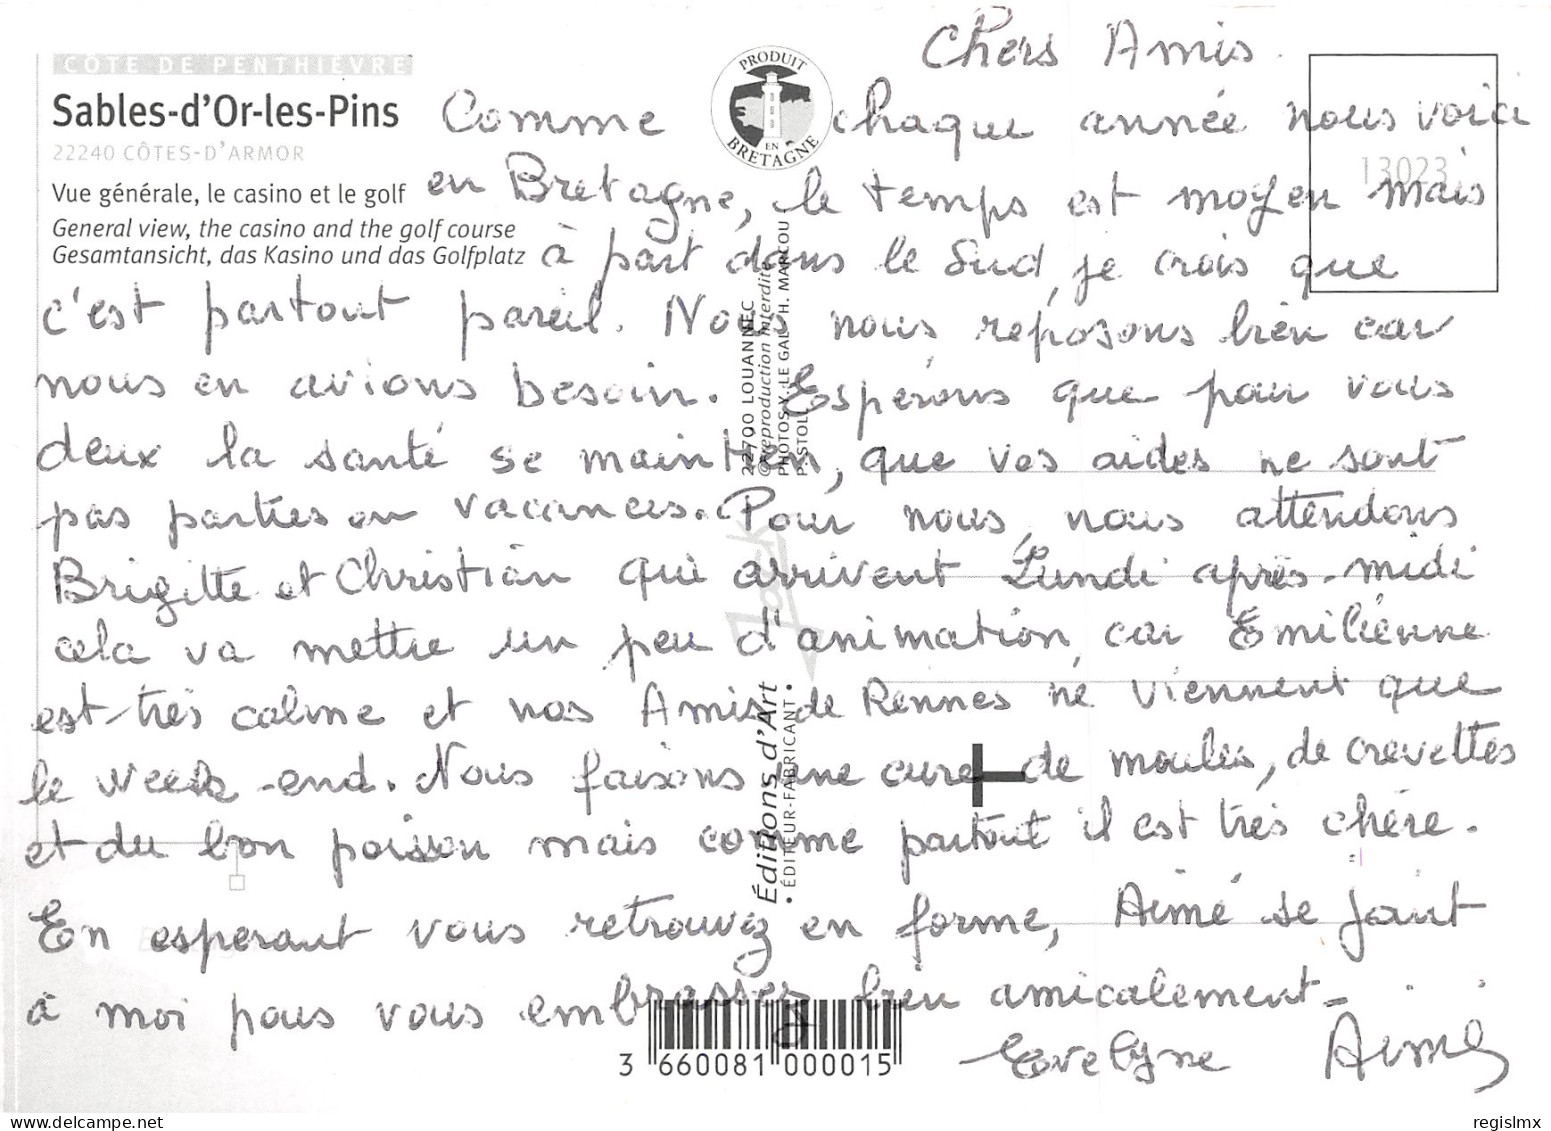 Chers Amis
CÔTE DE PENTHIÈVRE
Sables-d'Or-les-Pins
22240 CÔTES-D'ARMOR
Vue générale, le casino et le golf
General view, the casino and the golf course
Gesamtansicht, das Kasino und das Golfplatz
PRODUIT
EN
BRETAGNE
13023
Comme chaque année nous voici
en Bretagne, le temps est moyen mais
à part dans le Sud, je crois que
c'est partout pareil. Nous nous reposons bien car
nous en avions besoin. Espérons que pour vous
deux la santé se maintien, que vos aides ne sont
pas parties en vacances. Pour nous, nous attendons
Brigitte et Christian qui arrivent Lundi après-midi
cela va mettre un peu d'animation, car Emilienne
est très calme et nos Amis de Rennes ne viennent que
le week-end. Nous faisons une cure de moules, de crevettes
et du bon poisson mais comme partout il est très chère.
En esperant vous retrouvez en forme, Aimé se joint
à moi pous vous embrassez bien amicalement-
Evelyne Aimé
22700 LOUANNEC
©reproduction interdite
PHOTOS Y. LE GAL - H. MARCOU
P. STOLL
Jack
Éditions d'Art
• ÉDITEUR-FABRICANT •
3 660081 000015
regislmx